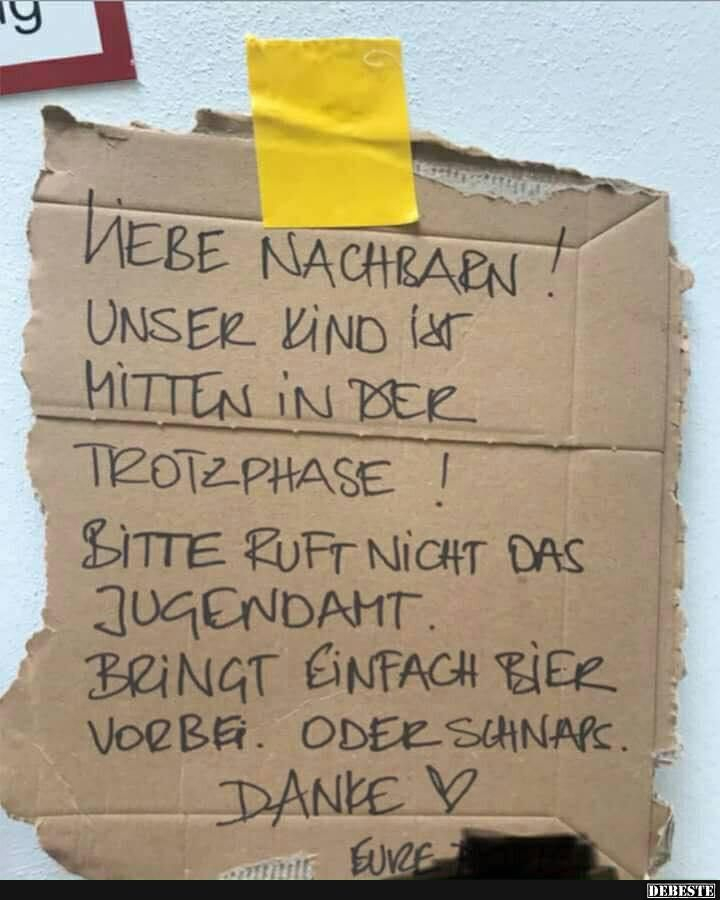 LIEBE NACHBARN!
UNSER KIND IST
MITTEN IN DER
TROTZPHASE!
BITTE RUFT NICHT DAS
JUGENDAMT.
BRINGT EINFACH BIER
VORBEI. ODER SCHNAPS.
DANKE ♡
EURE
DEBESTE